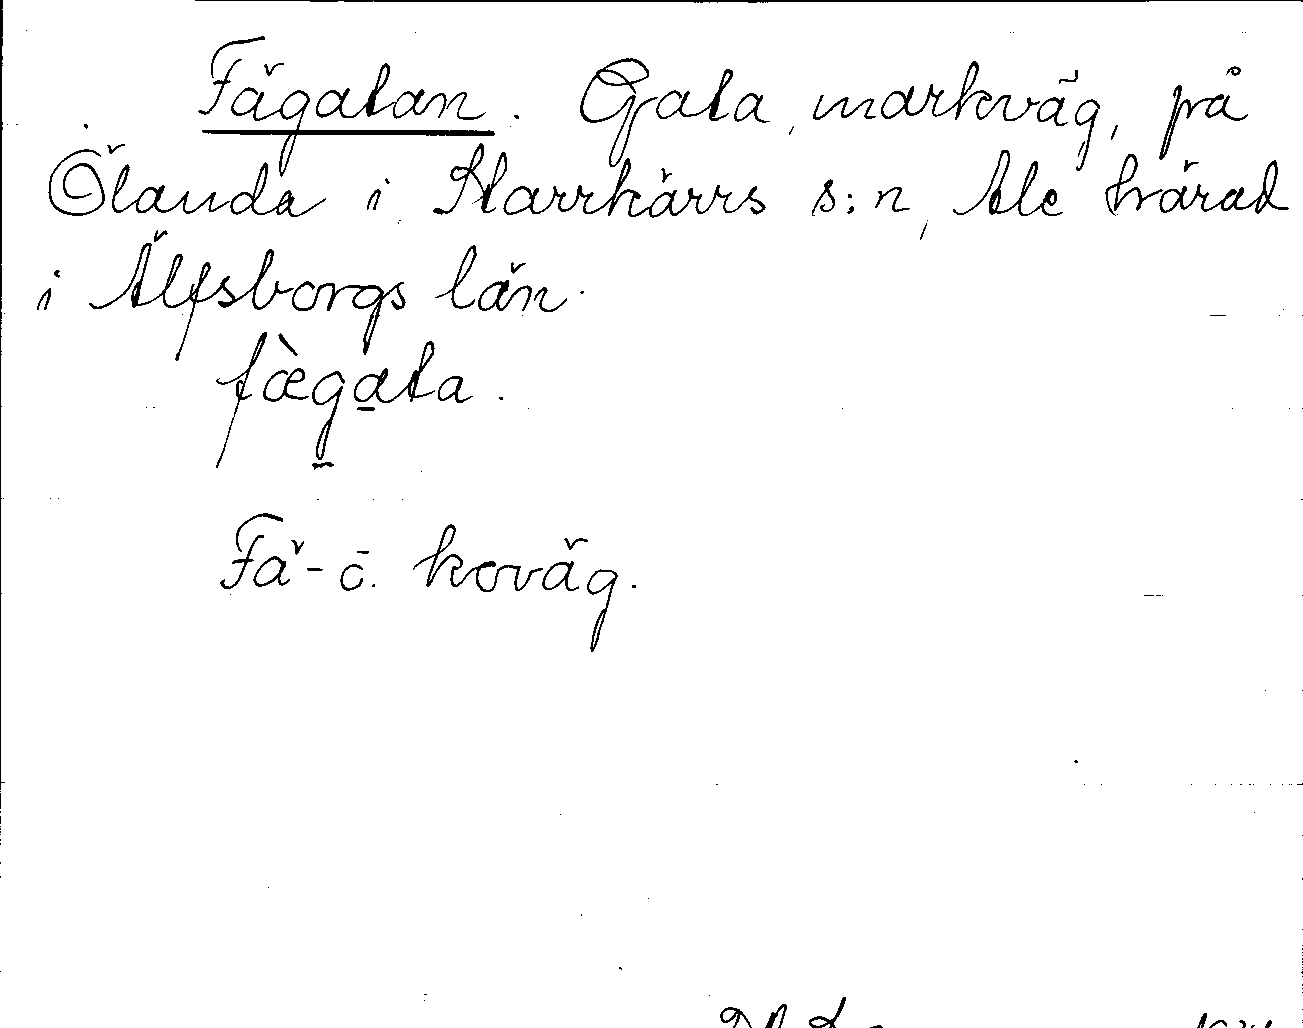 Fägatan. Gata, markväg, på
Ölanda i Starrkärrs s:n, Ale härad
i Älfsborgs län.
fæ̀gata.
Fä- o. koväg.